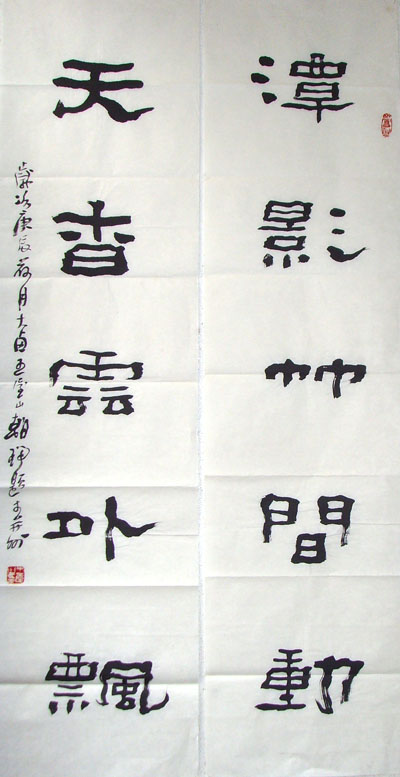 潭影竹間動
天香雲外飄
歲次庚辰荷月